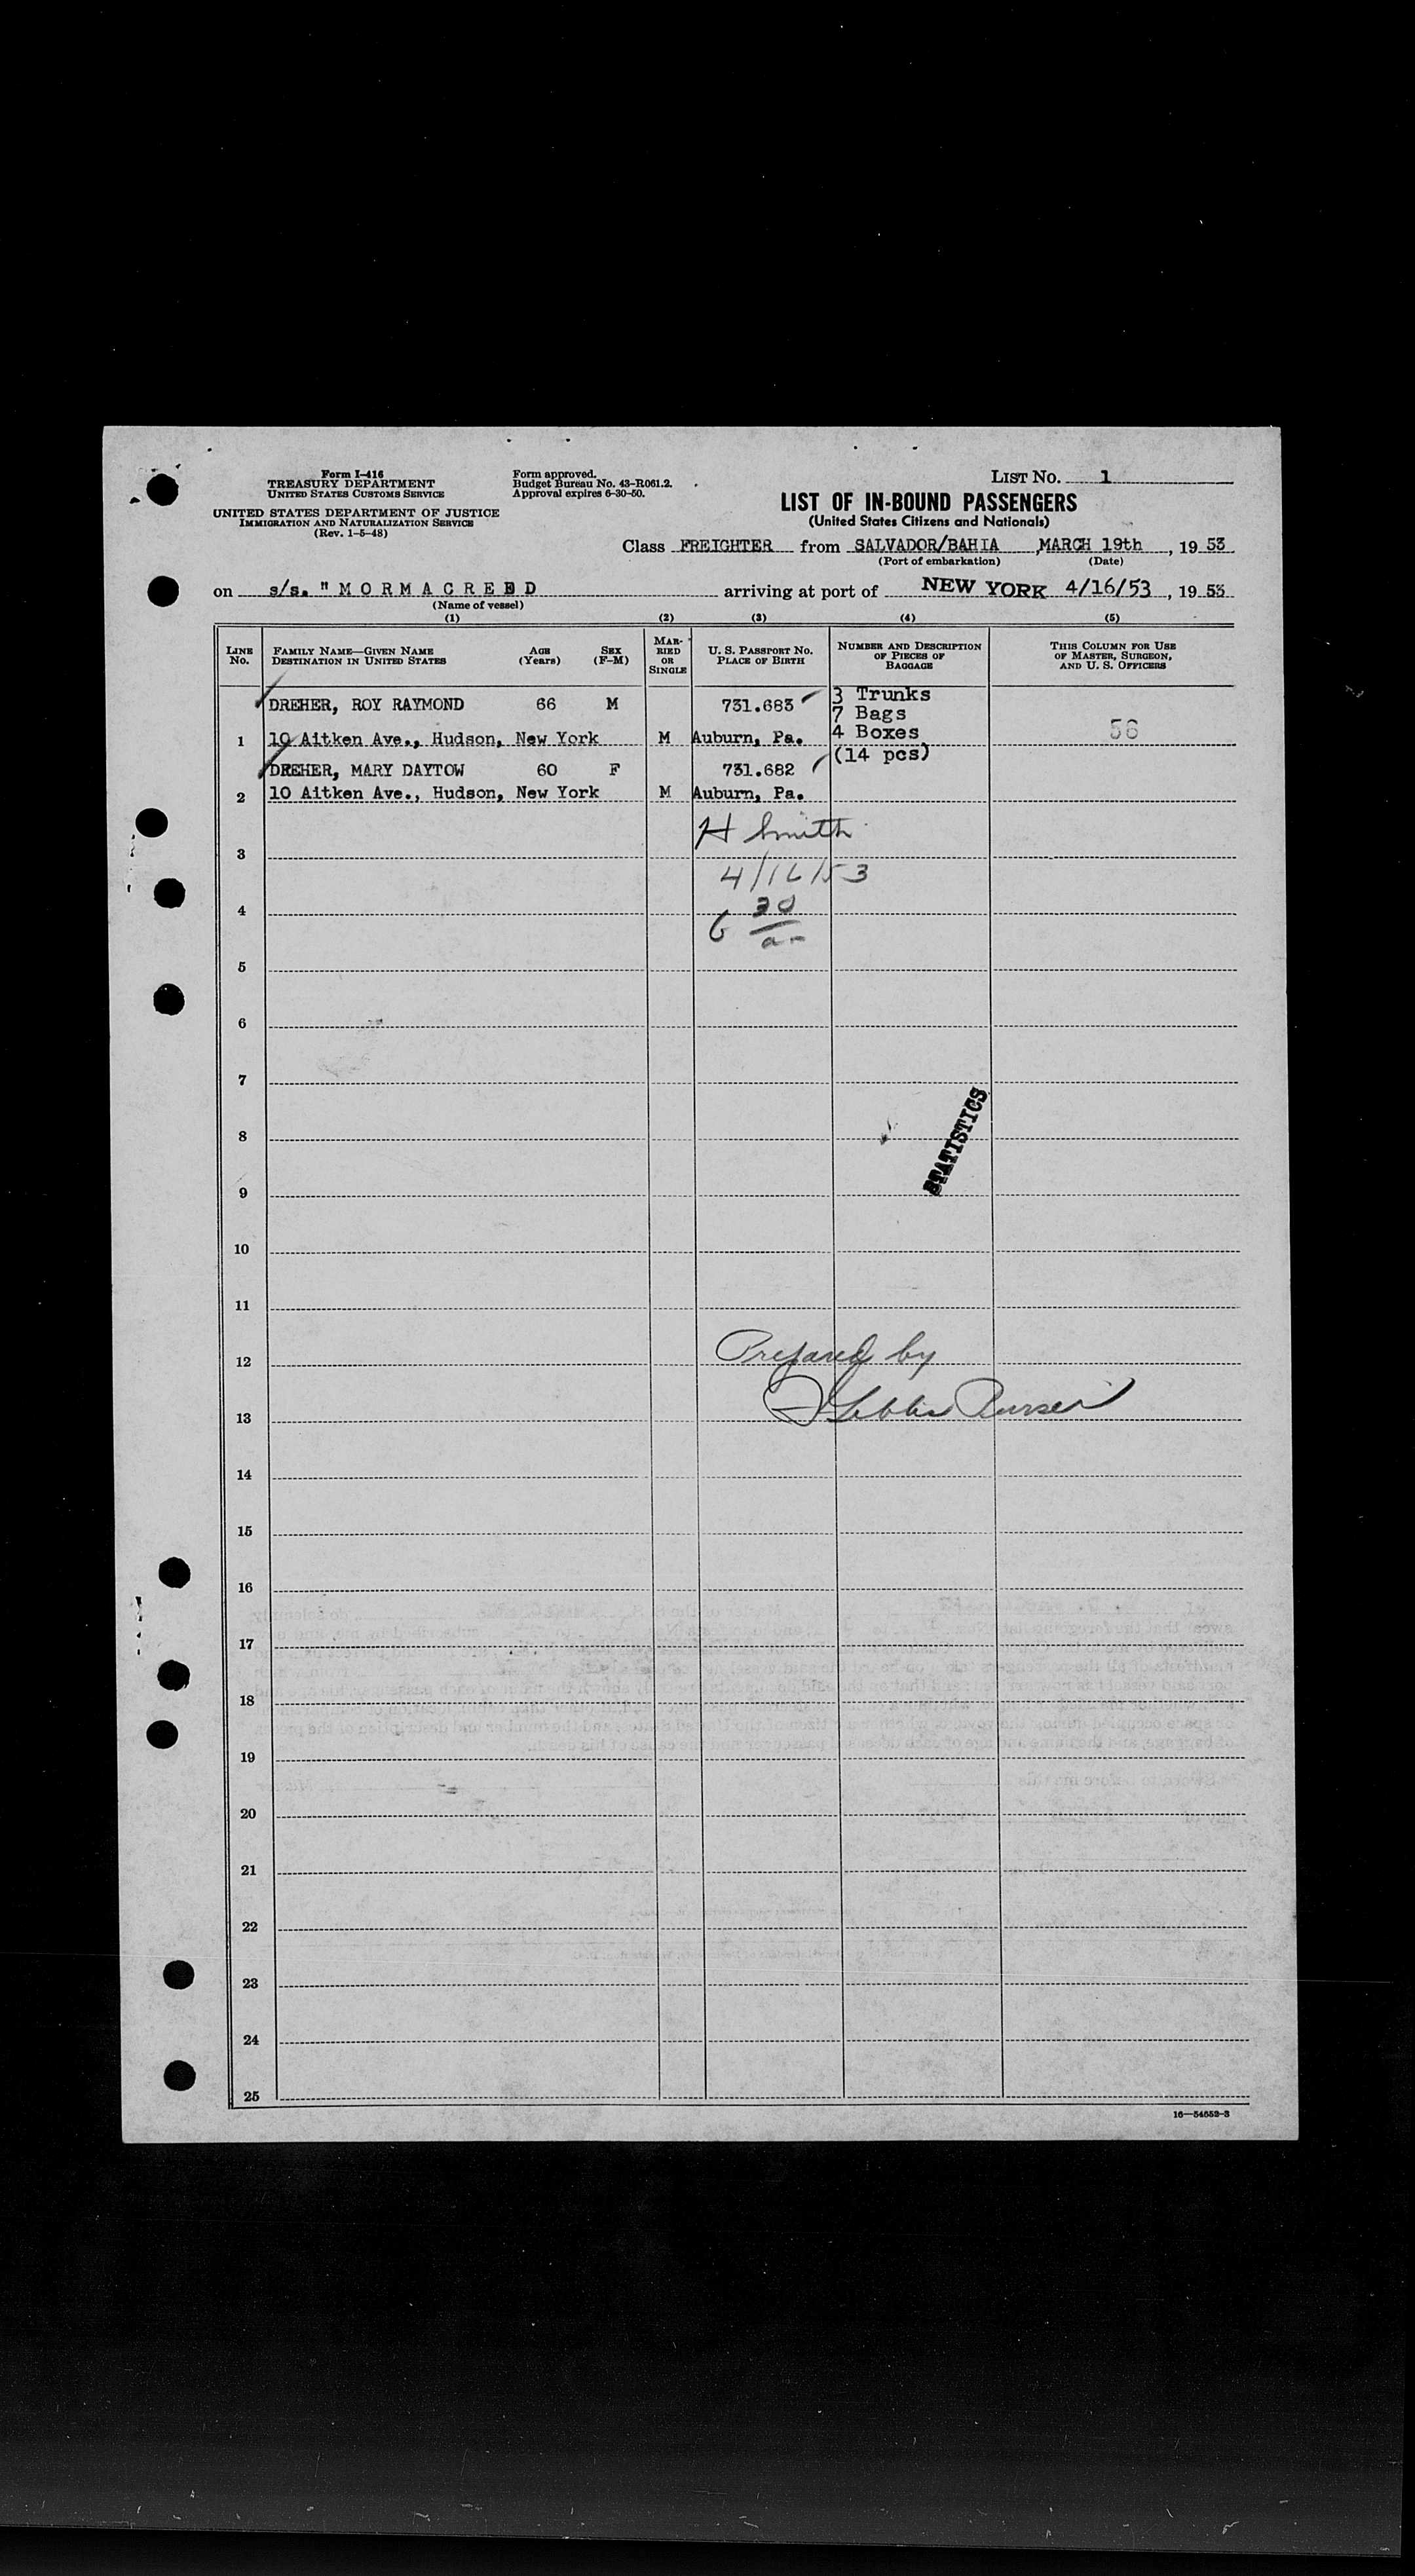 Form I-416
TREASURY DEPARTMENT
UNITED STATES CUSTOMS SERVICE
UNITED STATES DEPARTMENT OF JUSTICE
IMMIGRATION AND NATURALIZATION SERVICE
(Rev. 1-5-48)
Form approved.
Budget Bureau No. 43-R061.2.
Approval expires 6-30-50.
LIST NO. 1
LIST OF IN-BOUND PASSENGERS
(United States Citizens and Nationals)
Class FREIGHTER from SALVADOR/BAHIA, MARCH 19th, 19 53
(Port of embarkation) (Date)
on s/s. "MORMACREED arriving at port of NEW YORK 4/16/53, 19 53
(Name of vessel)
(1) (2) (3) (4) (5)
LINE NO. FAMILY NAME—GIVEN NAME DESTINATION IN UNITED STATES AGE (Years) SEX (F-M) MARRIED OR SINGLE U. S. PASSPORT NO. PLACE OF BIRTH NUMBER AND DESCRIPTION OF PIECES OF BAGGAGE THIS COLUMN FOR USE OF MASTER, SURGEON, AND U. S. OFFICERS
DREHER, ROY RAYMOND 66 M 731.683 3 Trunks
7 Bags
1 10 Aitken Ave., Hudson, New York M Auburn, Pa. 4 Boxes 56
(14 pcs)
DREHER, MARY DAYTOW 60 F 731.682
2 10 Aitken Ave., Hudson, New York M Auburn, Pa.
H Smith
3
4/16/53
4
6 30
5
6
7
STATISTICS
8
9
10
11
12 Prepared by
13 Purser
14
15
16
17
18
19
20
21
22
23
24
25
16—54552-3